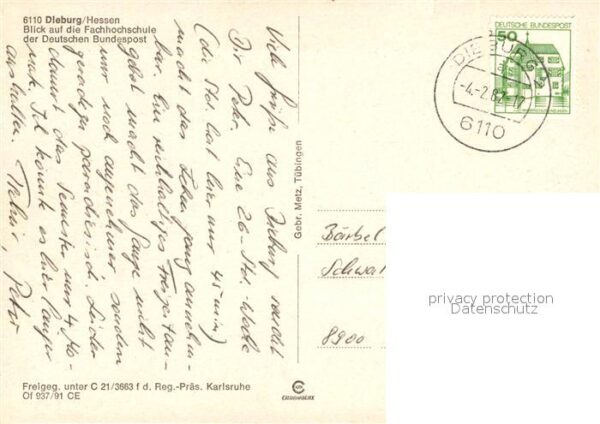 6110 Dieburg/Hessen
Blick auf die Fachhochschule
der Deutschen Bundespost
Viele Grüße aus Dieburg sendet
Dir Peter. Eine 26-Std.-Woche
(die Std. hat hier nur 45 min)
macht das Leben ganz annehm-
bar. Ein reichhaltiges Freizeitan-
gebot macht das Ganze nicht
nur noch angenehmer sondern
geradezu paradiesisch. Leider
dauert das Semester nur 4 Mo-
nate. Ich könnte es hier länger
aushalten. Tschüß, Peter
Gebr. Metz, Tübingen
DEUTSCHE BUNDESPOST
50
DIEBURG 2
-4.-2.87-17
6110
Bärbel
Schwa
8900
privacy protection
Datenschutz
Freigeg. unter C 21/3663 f d. Reg.-Präs. Karlsruhe
Of 937/91 CE